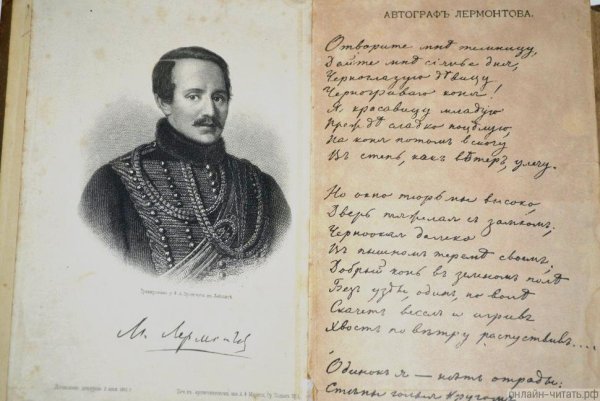 АВТОГРАФЪ ЛЕРМОНТОВА.
Отворите мнѣ темницу,
Дайте мнѣ сіянье дня,
Черноглазую дѣвицу,
Черногриваю коня!
Я красавицу младую
Прежде сладко поцѣлую,
На коня потомъ вскочу
Въ степь, какъ вѣтеръ, улечу.
Но окно тюрьмы высоко,
Дверь тяжелая съ замкомъ;
Черноокая далеко
Въ пышномъ теремѣ своемъ;
Добрый конь въ зеленомъ полѣ
Безъ узды, одинъ, по волѣ
Скачетъ веселъ и игривъ
Хвостъ по вѣтру распустивъ....
Одинокъ я — нѣтъ отрады:
Стѣны голыя кругомъ,
М. Лермонтов
онлайн-читать.рф